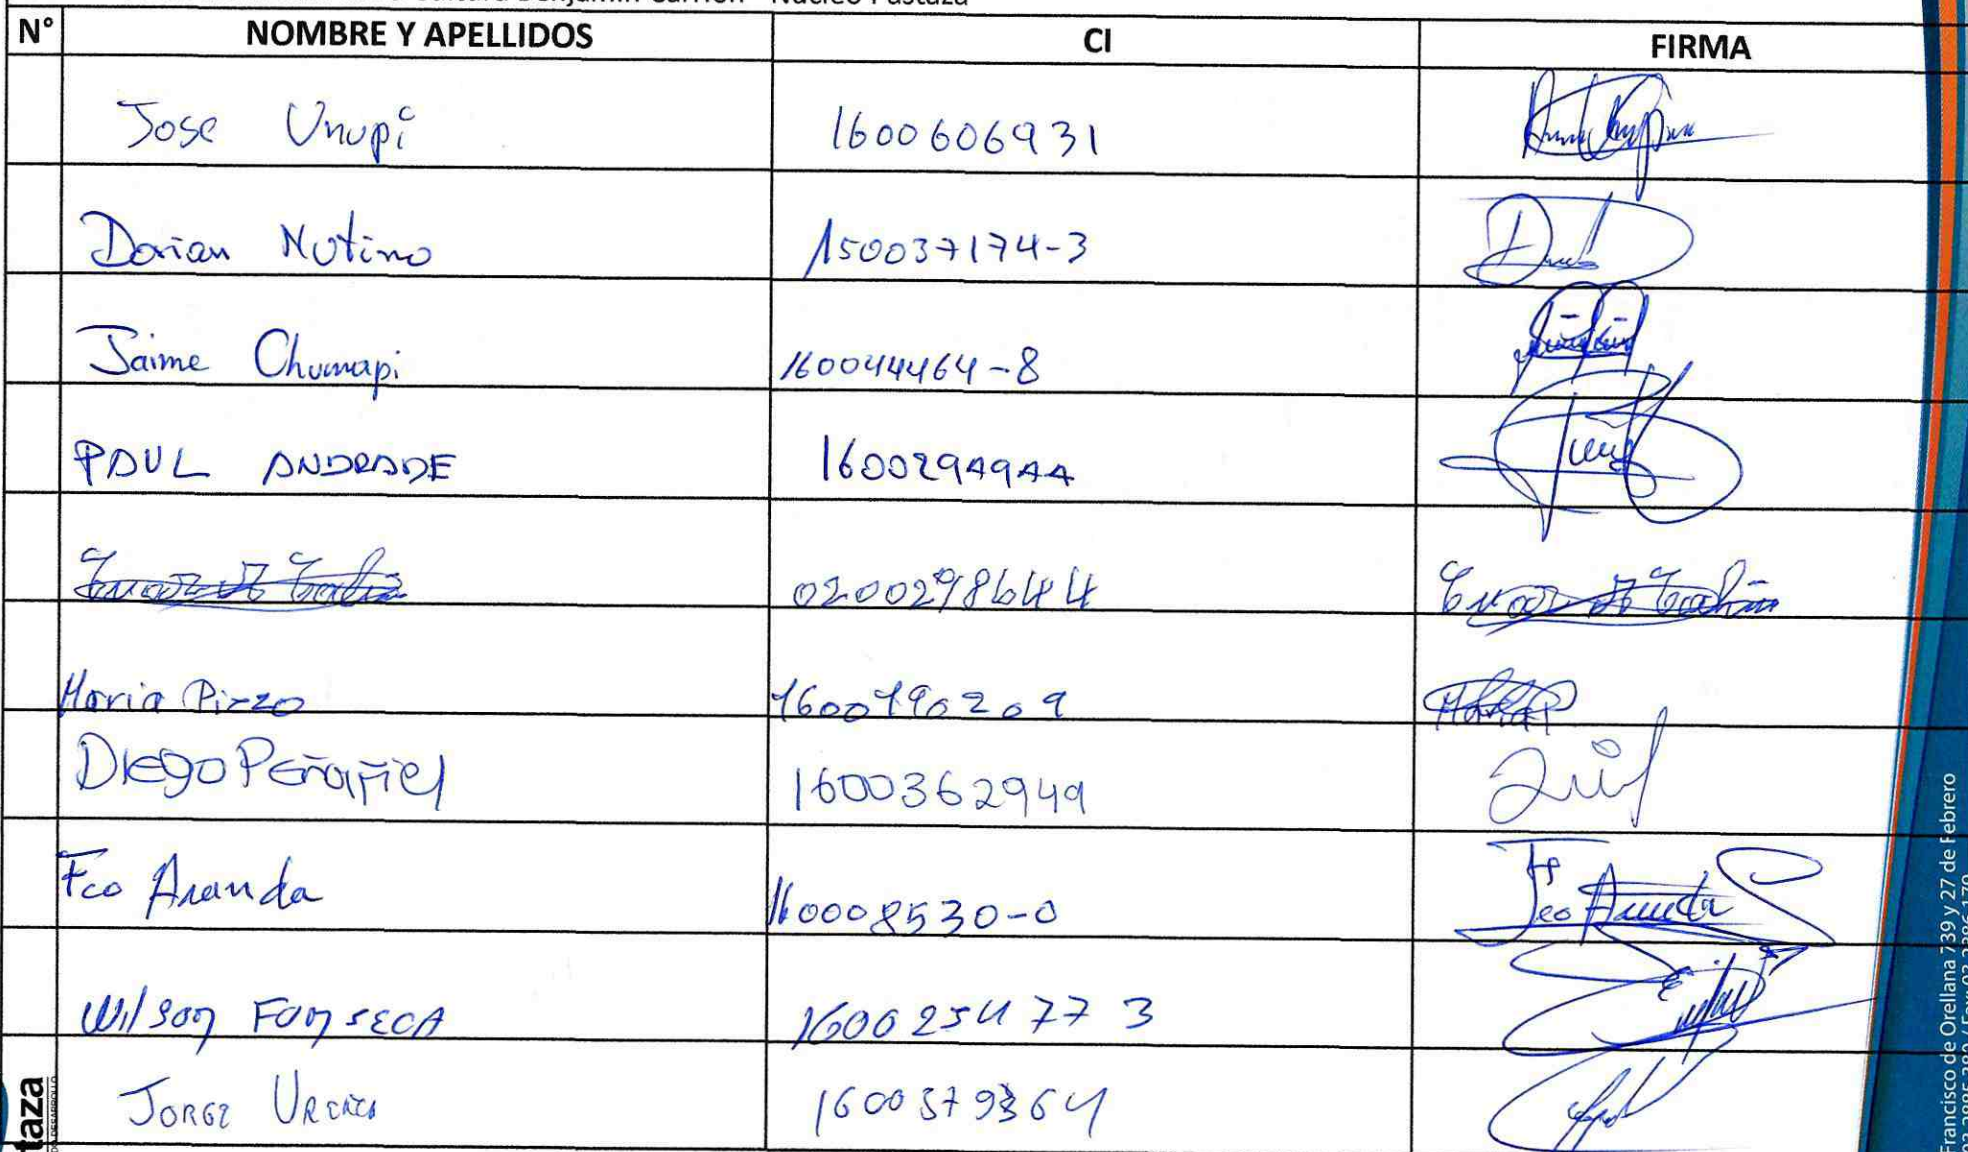 Cultura Benjamín Carrión - Núcleo Pastaza
N° NOMBRE Y APELLIDOS CI FIRMA
Jose Unupi 1600606931
Dorian Nutino 150037174-3
Jaime Chumapi 160044464-8
PAUL ANDRADE 1600294944
0200298644
Maria Pizzo 1600190209
Diego Peñafiel 1600362949
Fco Aranda 160008530-0 Fco Aranda
Wilson FONSECA 1600254773
JORGE 1600379364
taza
Francisco de Orellana 739 y 27 de Febrero